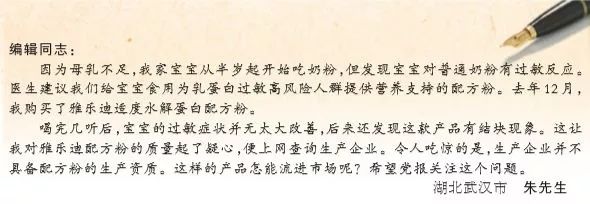 编辑同志：
因为母乳不足，我家宝宝从半岁起开始吃奶粉，但发现宝宝对普通奶粉有过敏反应。
医生建议我们给宝宝食用为乳蛋白过敏高风险人群提供营养支持的配方粉。去年12月，
我购买了雅乐迪适度水解蛋白配方粉。
喝完几听后，宝宝的过敏症状并无太大改善，后来还发现这款产品有结块现象。这让
我对雅乐迪配方粉的质量起了疑心，便上网查询生产企业。令人吃惊的是，生产企业并不
具备配方粉的生产资质。这样的产品怎能流进市场呢？希望党报关注这个问题。
湖北武汉市 朱先生